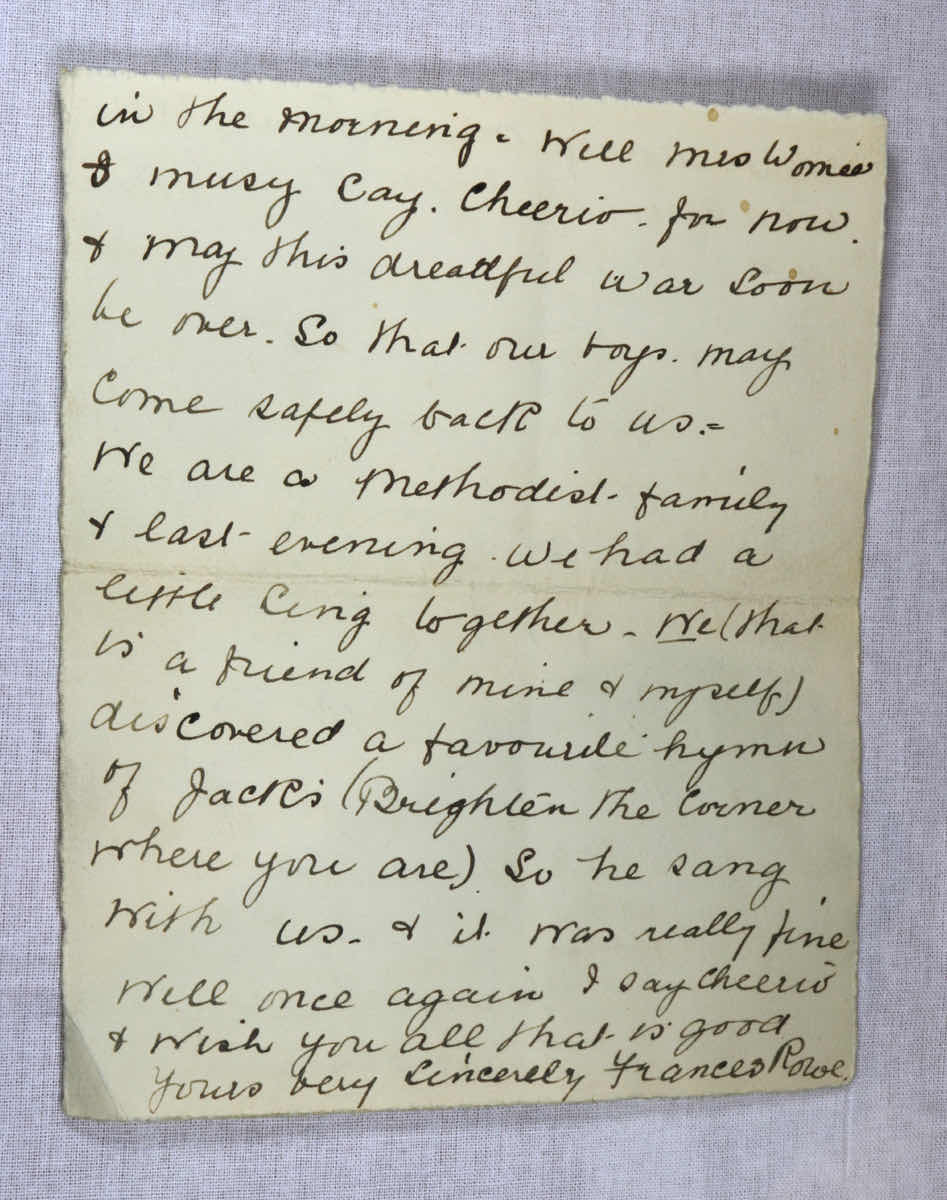 in the morning. Will Mrs
I musy Say. Cheerio. for now.
& may this dreadful war soon
be over. So that our boys. may
Come safely back to us.=
We are a Methodist. family
& last evening. We had a
little Sing together. We (that
is a friend of mine & myself)
discovered a favourite hymn
of Jack's (Brighten the Corner
where you are) So he sang
with us. & it was really fine
Well once again I say Cheerio
& wish you all that is good
Yours very Sincerely Frances Rowe.